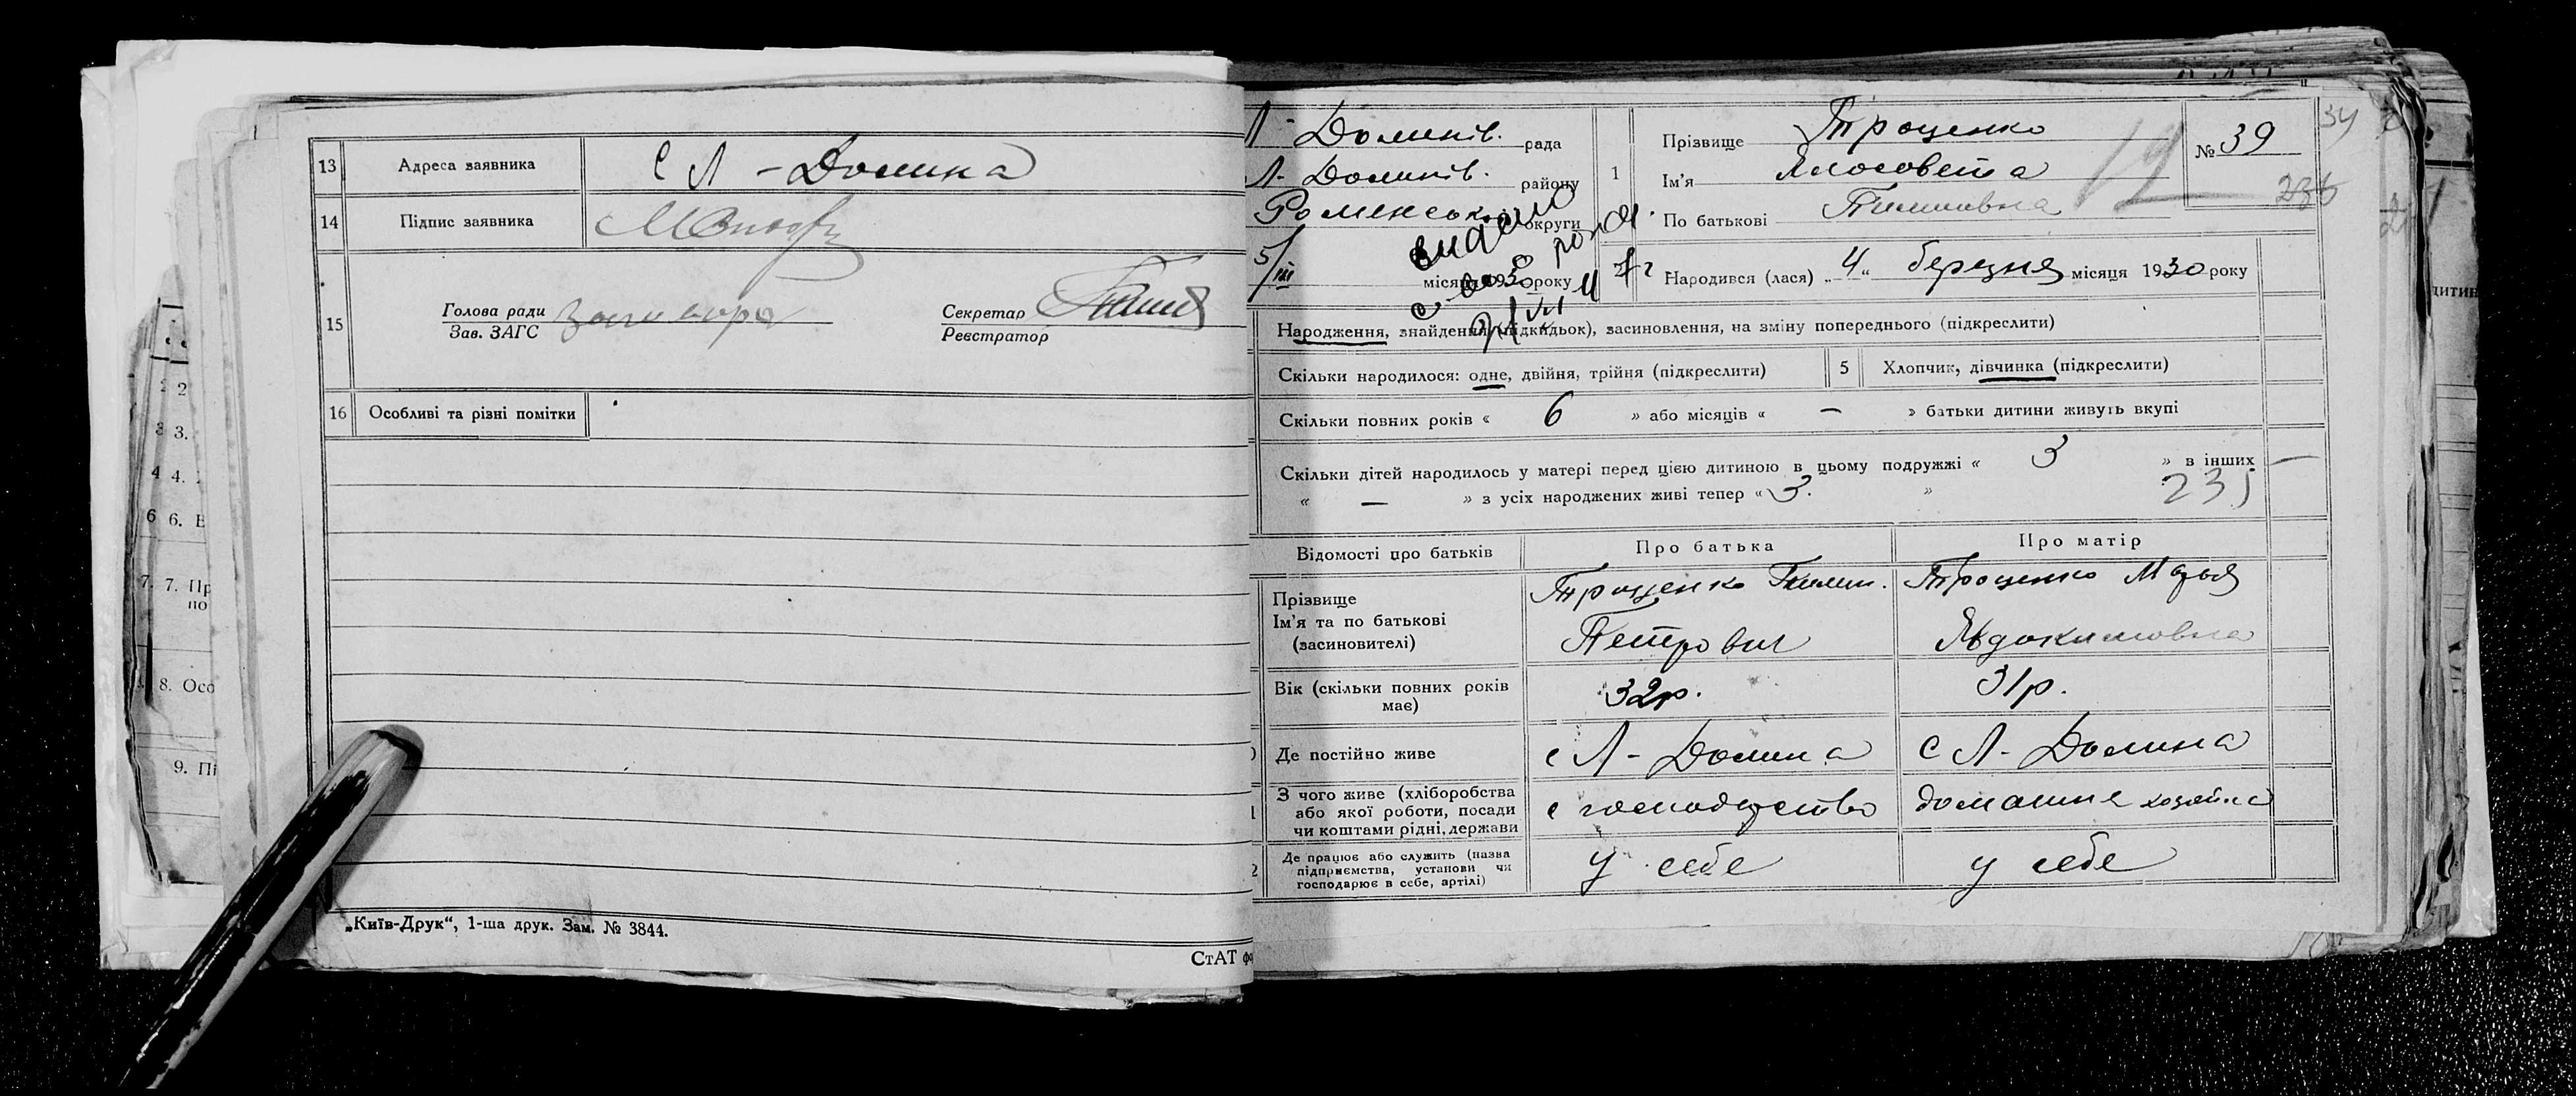 13 Адреса заявника С Л - Долина
14 Підпис заявника
15 Голова ради
Зав. ЗАГС
Секретар
Реєстратор
16 Особливі та різні помітки
„Київ-Друк“, 1-ша друк. Зам. № 3844.
СтАТ
2
3.
4.
6.
7.
8. Осо
9. Пі
Л- Долинів. рада
Л- Долинів. району
Роменськ округи
5/III місяця 1930 року
видано
1 Прізвище Троценко
Ім'я
По батькові Тимишовна
№ 39
34
235
Народився (лася) „ 4 “ березня місяця 1930 року
Народження, знайдення (підкидьок), засиновлення, на зміну попереднього (підкреслити)
Скільки народилося: одне, двійня, трійня (підкреслити) 5 Хлопчик, дівчинка (підкреслити)
Скільки повних років « 6 » або місяців « — » батьки дитини живуть вкупі
Скільки дітей народилось у матері перед цією дитиною в цьому подружжі « 3 » в інших —
« — » з усіх народжених живі тепер « 3. »
235
Відомості про батьків Про батька Про матір
Прізвище Ім'я та по батькові (засиновителі)
Троценко Тимиш. Троценко Марья
Петрович Явдокимовна
Вік (скільки повних років має) 32р. 31р.
Де постійно живе с Л - Долина С Л- Долина
З чого живе (хліборобства або якої роботи, посади чи коштами рідні, держави домашне
Де працює або служить (назва підприємства, установи чи господарює в себе, артілі) у себе у себе